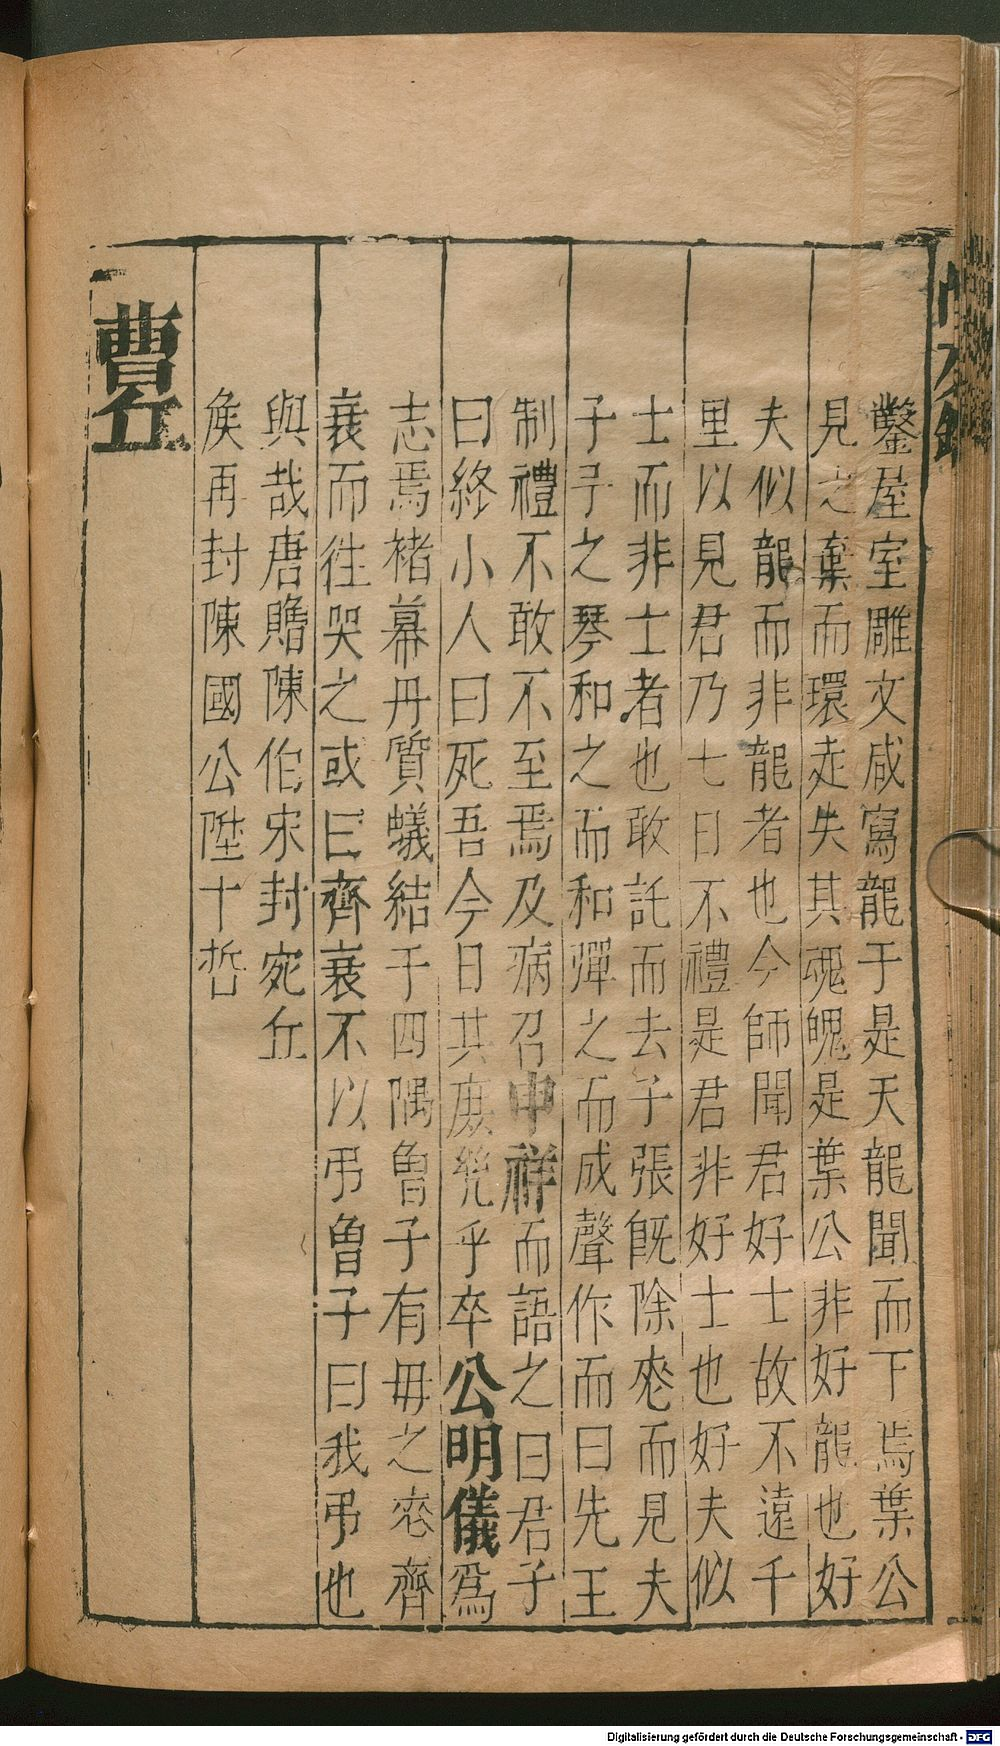 鑿屋室雕文咸寫龍于是天龍聞而下焉葉公
見之棄而環走失其魂魄是葉公非好龍也好
夫似龍而非龍者也今師聞君好士故不遠千
里以見君乃七日不禮是君非好士也好夫似
士而非士者也敢託而去子張旣除䘮而見夫
子予之琴和之而和彈之而成聲作而曰先王
制禮不敢不至焉及病召申祥而語之曰君子
曰終小人曰死吾今日其庶幾乎卒公明儀爲
志焉褚幕丹質蟻結于四隅曾子有母之䘮齊
衰而往哭之或曰齊衰不以弔曾子曰我弔也
與哉唐贈陳伯宋封宛丘
侯再封陳國公陞十哲
曹丘
Digitalisierung gefördert durch die Deutsche Forschungsgemeinschaft - DFG